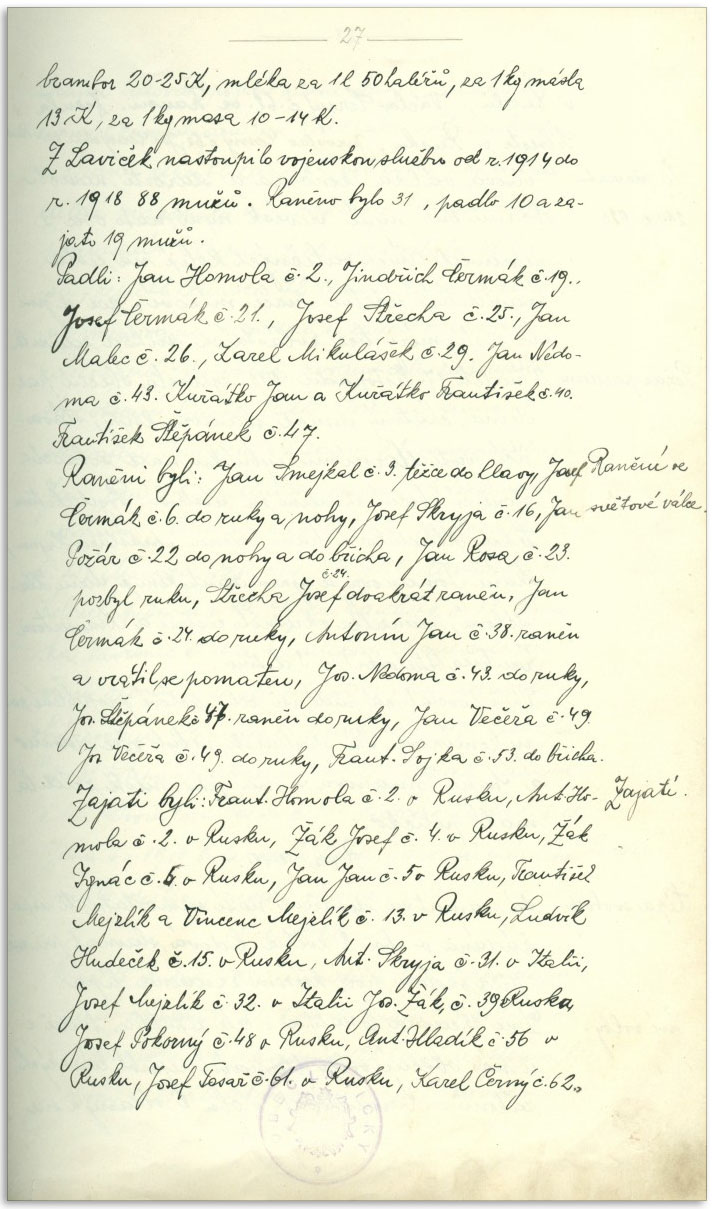 27
brambor 20-25 K, mléka za 1 l 50 haléřů, za 1 kg másla
13 K, za 1 kg masa 10-14 K.
Z Laviček nastoupilo vojenskou službu od r. 1914 do
r. 1918 88 mužů. Raněno bylo 31, padlo 10 a za-
jato 19 mužů.
Padli: Jan Homola č. 2., Jindřich Čermák č. 19.,
Josef Čermák č. 21., Josef Střecha č. 25., Jan
Malec č. 26., Karel Mikulášek č. 29. Jan Nedo-
ma č. 43. Kuřátko Jan a Kuřátko František č. 40.
František Štěpánek č. 47.
Raněni byli: Jan Smejkal č. 3. těžce do hlavy, Josef
Raněni ve
Čermák č. 6. do ruky a nohy, Josef Skryja č. 16, Jan
světové válce.
Požár č. 22 do nohy a do břicha, Jan Rosa č. 23.
č. 24.
pozbyl ruku, Střecha Josef dvakrát raněn, Jan
Čermák č. 24. do ruky, Antonín Jan č. 38. raněn
a vrátil se pomaten, Jos. Nedoma č. 43. do ruky,
Jos. Štěpánek č 47. raněn do ruky, Jan Večeřa č. 49.
Jos Večeřa č. 49. do ruky, Frant. Sojka č. 53. do břicha.
Zajati byli: Frant. Homola č. 2. v Rusku, Ant. Ho-
Zajatí.
mola č. 2. v Rusku, Žák Josef č. 4. v Rusku, Žák
Ignác č. v Rusku, Jan Jan č. 5 v Rusku, František
Mejzlík a Vincenc Mejzlík č. 13. v Rusku, Ludvík
Hudeček č. 15. v Rusku, Ant. Skryja č. 31. v Italii,
Josef Mejzlík č. 32. v Italii Jos. Žák, č. 39 Ruska,
Josef Pokorný č. 48 v Rusku, Ant. Hladík č. 56 v
Rusku, Josef Tosař č. 61. v Rusku, Karel Černý č. 62.,